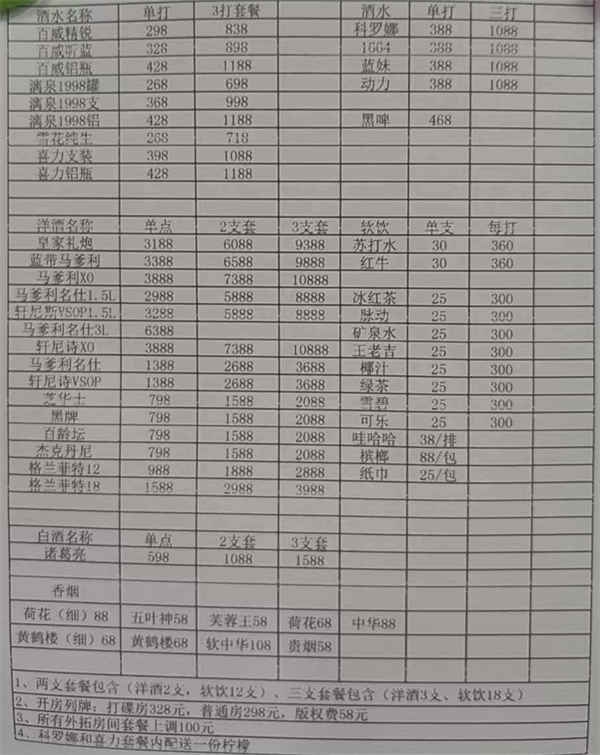 酒水名称 单打 3打套餐 酒水 单打 三打
百威精锐 298 838 科罗娜 388 1088
百威昕蓝 328 898 1664 388 1088
百威铝瓶 428 1188 蓝妹 388 1088
漓泉1998罐 268 698 动力 388 1088
漓泉1998支 368 998
漓泉1998铝 428 1188 黑啤 468
雪花纯生 268 718
喜力支装 398 1088
喜力铝瓶 428 1188
洋酒名称 单点 2支套 3支套 软饮 单支 每打
皇家礼炮 3188 6088 9388 苏打水 30 360
蓝带马爹利 3388 6588 9888 红牛 30 360
马爹利XO 3888 7388 10888
马爹利名仕1.5L 2988 5888 8888 冰红茶 25 300
轩尼斯VSOP1.5L 3288 5888 8888 脉动 25 300
马爹利名仕3L 6388 矿泉水 25 300
轩尼诗XO 3888 7388 10888 王老吉 25 300
马爹利名仕 1388 2688 3688 椰汁 25 300
轩尼诗VSOP 1388 2688 3688 绿茶 25 300
芝华士 798 1588 2088 雪碧 25 300
黑牌 798 1588 2088 可乐 25 300
百龄坛 798 1588 2088 哇哈哈 38/排
杰克丹尼 798 1588 2088 槟榔 88/包
格兰菲特12 988 1888 2888 纸巾 25/包
格兰菲特18 1588 2988 3988
白酒名称 单点 2支套 3支套
诸葛亮 598 1088 1588
香烟
荷花（细）88 五叶神58 芙蓉王58 荷花68 中华88
黄鹤楼（细）68 黄鹤楼68 软中华108 贵烟58
1、两支套餐包含（洋酒2支，软饮12支）、三支套餐包含（洋酒3支、软饮18支）
2、开房列牌：打碟房328元，普通房298元，版权费58元
3、所有外拓房间套餐上调100元
4、科罗娜和喜力套餐内配送一份柠檬